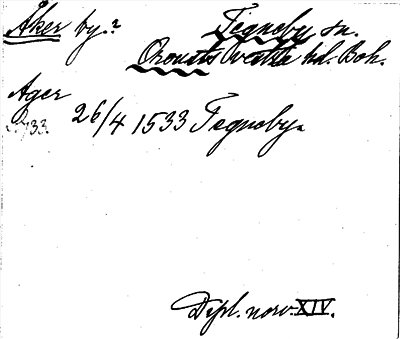 Åker by.? Tegneby sn.
Orousts Vestra hd. Boh.
Ager
26/4 1533 Tegneby.
Dipl. norv. XIV.